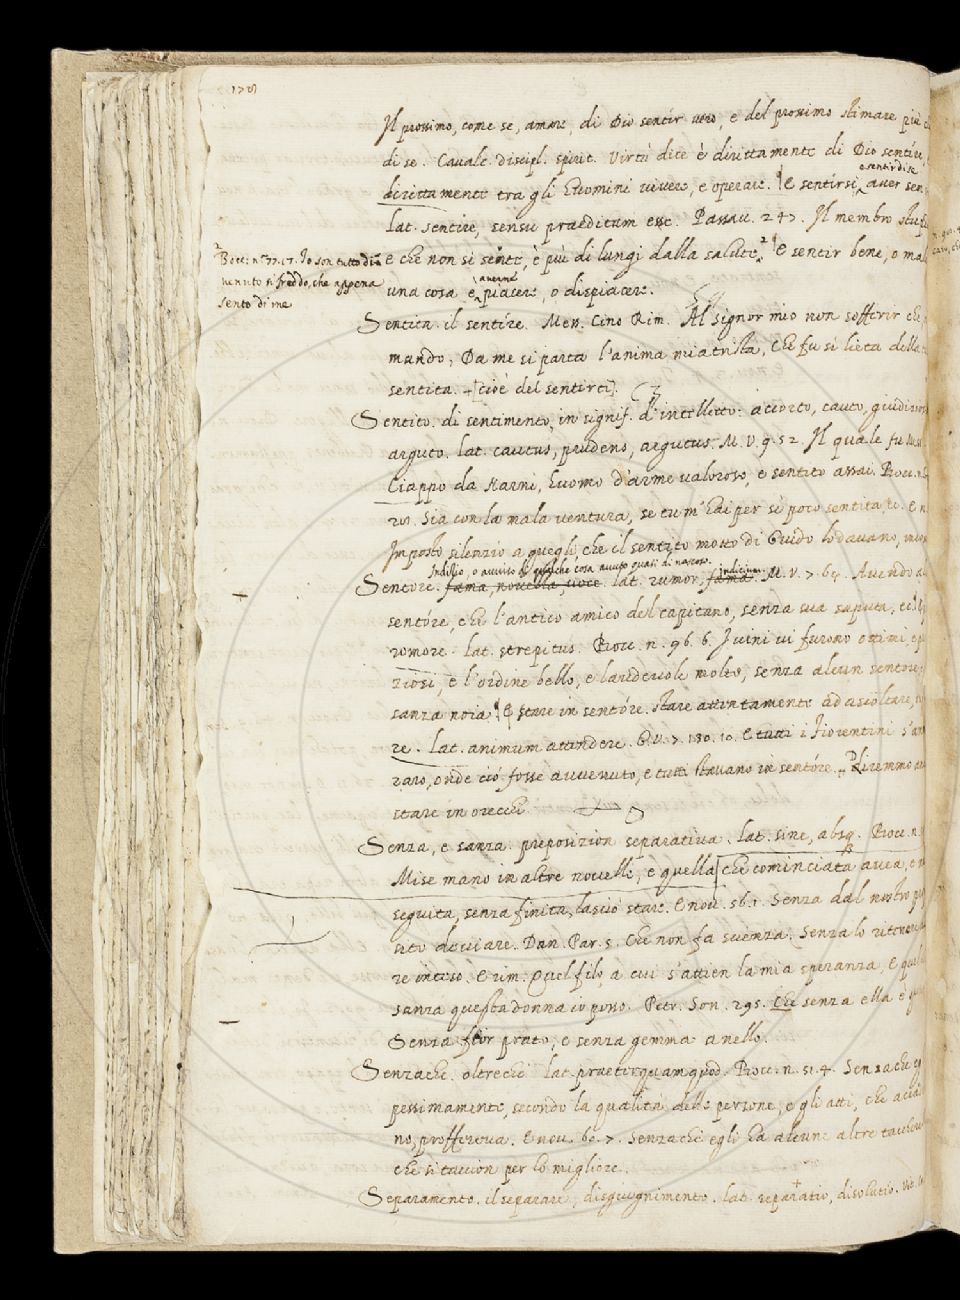 Il prossimo, come se, amare, di Dio sentir vero, e del prossimo stimare più
di se. Cavalc. discipl. spirit. Virtù dice è dirittamente di Dio sentire,
e sentir di se
dirittamente tra gli huomini vivere, e operare. E sentirsi, aver sen
lat. sentire, sensu praeditum esse. Passav. 247. Il membro
e che non si sente, è più di lungi dalla salute. E sentir bene, o mal
2 Bocc. n. 77.17. Io son tutto di
venuto sì freddo, che appena
sento di me
averne
una cosa è piacere, o dispiacere.
il sentíre. Mess. Cino Rim. Al Signor mio non sofferir che
mundo, Da me si parta l'anima mia trista, Che fu sì lieta della
sentita. [cioè del sentirti].
Sentito. di sentimento, in signif. d'intelletto: accorto, cauto, giudizios
arguto. lat. cautus, prudens, argutus. M. V. 9. 52. Il quale fu
Ciappo da Narni, huomo d'arme valoroso, e sentito assai. Bocc. n.
Sia con la mala ventura, se tu m'hai per sì poco sentita, ec. E n
Imposto silenzio a quegli, che il sentito motto di Guido lodavano,
Indizio, o avviso di qualche cosa avuto quasi di nascoso.
indicium
Sentore. fama, novella, voce. lat. rumor, fama. M. V. 7. 64. Avendo
sentóre, che l'antico amico del capitano, senza sua saputa, ec.
romore. lat. strepitus. Bocc. n. 96. 6. I vini vi furono ottimi, e
ziosi, e l'ordine bello, e laudevole molto, senza alcun sentore,
sanza noia. E stare in sentóre. stare attentamente ad ascoltare,
re. lat. animum attendere. G. V. 7. 130. 10. E tutti i Fiorentini
raro, onde ciò fosse avvenuto, e tutti stavano in sentóre. Diremmo
stare in orecchi
Senza, e sanza. preposizion separativa. lat. sine, absq. Bocc. n.
Mise mano in altre novelle, e quella che cominciata avea, e
seguita, senza finita, lasciò stare. E nov. 56. 1. Senza dal nostro
sito desviare. Dan. Par. 5. Che non fa scienza, Senza lo ritenere
re inteso. E rim. Quel filo, a cui s'attien la mia speranza, E
sanza questa donna io pono. Petr. Son. 295. Che senza ella è
Senza fior prato, e senza gemma anello.
Senzachè. oltrechè. lat. praeterquamquod. Bocc. n. 51. 4. Senzachè
pessimamente, secondo la qualità delle persone, e gli atti, che
no, proffereva. E nov. 60. 7. Senzachè egli ha alcune altre
che si taccion per lo migliore.
Separamento. il separare, disgiugnimento. lat. separatio, disolutio.